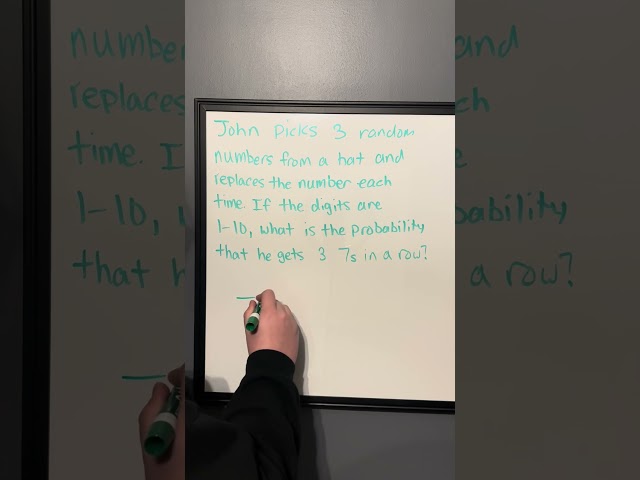 John picks 3 random
numbers from a hat and
replaces the number each
time. If the digits are
1-10, what is the probability
that he gets 3 7s in a row?